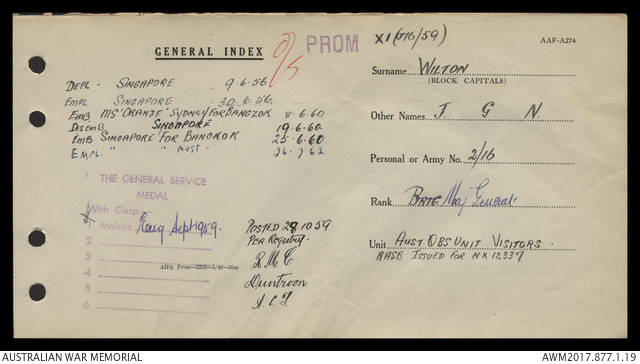 GENERAL INDEX
O/S
PROM
X1 (176/59)
AAF-A274
Surname WILTON
(BLOCK CAPITALS)
Other Names J G N
Personal or Army No. 2/16
Rank BRIG Maj General
Unit AUST OBS UNIT VISITORS.
RASB ISSUED FOR NX12337
DEPL - SINGAPORE 9.6.56
EMPL SINGAPORE 30.6.56.
EMB M/S 'ORANJE' SYDNEY FOR BANGKOK 8.6.60
DISEMB SINGAPORE 19.6.60.
EMB SINGAPORE FOR BANGKOK 25.6.60
EMPL. " " AUST. 26.7.62
THE GENERAL SERVICE
MEDAL
With Clasp
1 Malaya Sept 1959.
2
3
4
5
6
POSTED 28 10 59
PER Register.
R.M.C
Duntroon
A.C.T
AHQ Press—3216—5/46—50m
AUSTRALIAN WAR MEMORIAL
AWM2017.877.1.19